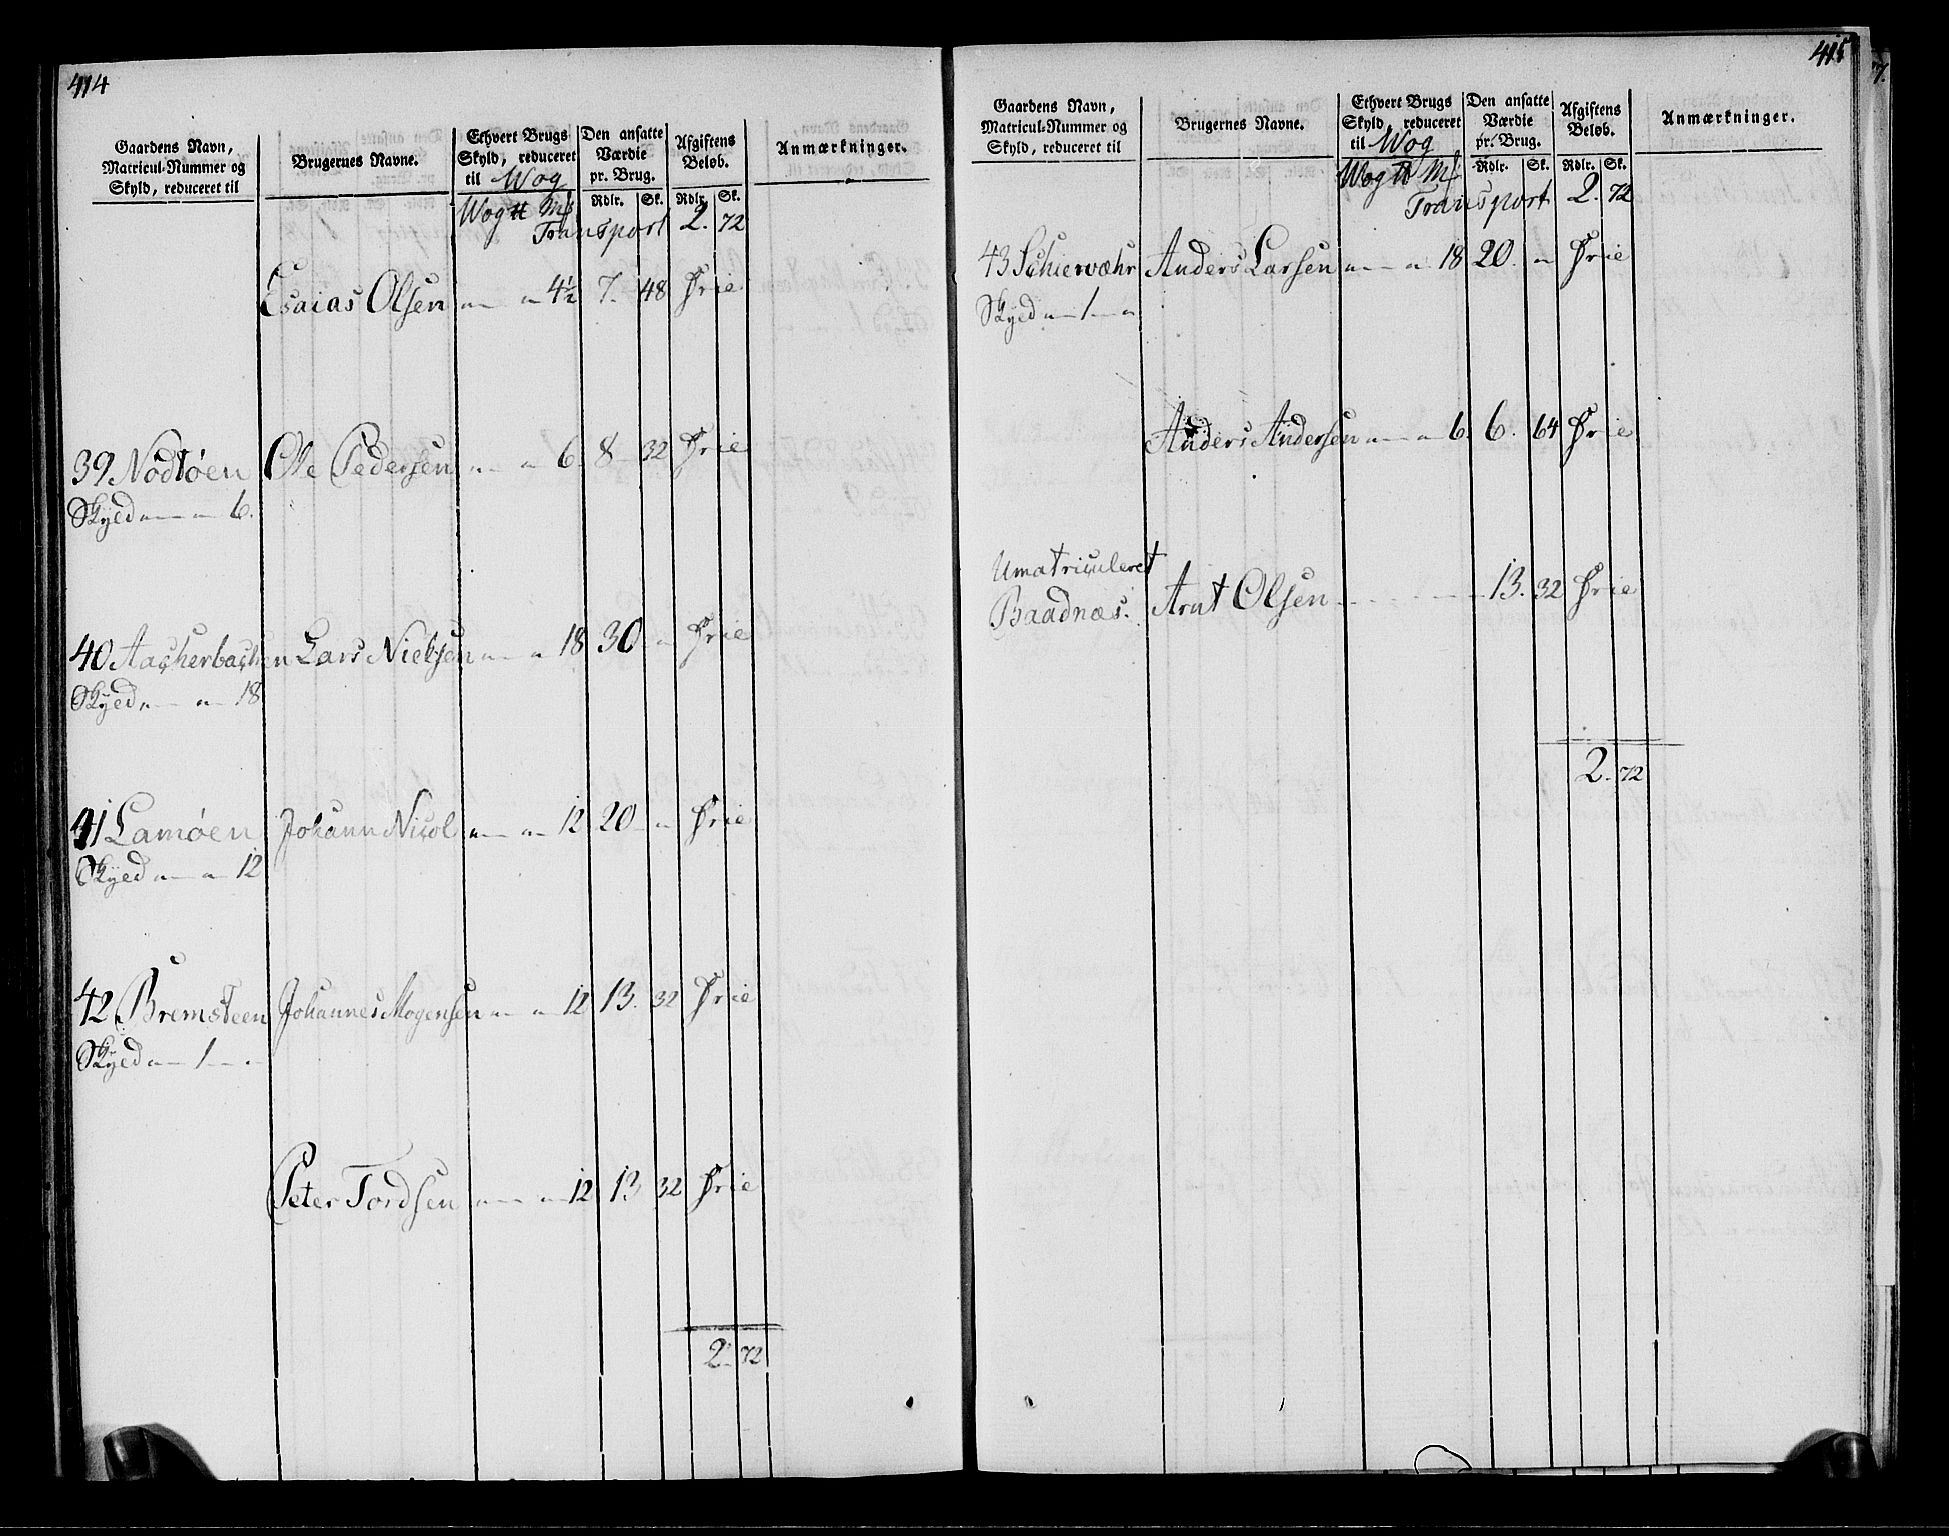 414
Gaardens Navn, Matricul-Nummer og Skyld, reduceret til
Brugernes Navne.
Ethvert Brugs Skyld, reduceret til Wog
Den ansatte Værdie pr. Brug.
Afgiftens Beløb.
Anmærkninger.
Wog ℔ Mk Rdlr. Sk. Rdlr. Sk.
Transport 2. 72
Esaias Olsen " — " 4½ 7. 48 Frie
39 Nodtøen Ole Pedersen " — " 6. 8 32 Frie
Skyed " — " 6.
40 Aascherbachen Lars Nielsen " — " 18 30 " Frie
Skyed " — " 18
41 Lamøen Johann Nicol " — " 12 20 — " Frie
Skyed " — " 12
42 Bremsteen Johannes Mogensen " — " 12 13. 32 Frie
Skyed " — 1 — "
Peter Tordsen " — " 12 13 32 Frie
2. 72
415
Gaardens Navn, Matricul-Nummer og Skyld, reduceret til
Brugernes Navne.
Ethvert Brugs Skyld, reduceret til Wog
Den ansatte Værdie pr. Brug.
Afgiftens Beløb.
Anmærkninger.
Wog ℔ Mk Rdlr. Sk. Rdlr. Sk.
Transport 2. 72
43 Schierwæhr Anders Larsen " — " 18 20. " Frie
Skyed " — 1 — "
Anders Andersen " — " 6. 6. 64 Frie
Umatriculeret
Baadnæs. Arnt Olsen 13. 32 Frie
2. 72
7.